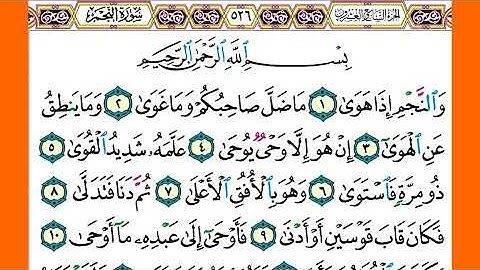 الجزء السابع والعشرون ٥٢٦ سورة النجم
بِسْمِ ٱللَّهِ ٱلرَّحْمَٰنِ ٱلرَّحِيمِ
وَٱلنَّجْمِ إِذَا هَوَىٰ ١ مَا ضَلَّ صَاحِبُكُمْ وَمَا غَوَىٰ ٢ وَمَا يَنطِقُ
عَنِ ٱلْهَوَىٰٓ ٣ إِنْ هُوَ إِلَّا وَحْىٌ يُوحَىٰ ٤ عَلَّمَهُۥ شَدِيدُ ٱلْقُوَىٰ ٥
ذُو مِرَّةٍ فَٱسْتَوَىٰ ٦ وَهُوَ بِٱلْأُفُقِ ٱلْأَعْلَىٰ ٧ ثُمَّ دَنَا فَتَدَلَّىٰ ٨
فَكَانَ قَابَ قَوْسَيْنِ أَوْ أَدْنَىٰ ٩ فَأَوْحَىٰٓ إِلَىٰ عَبْدِهِۦ مَآ أَوْحَىٰ ١٠